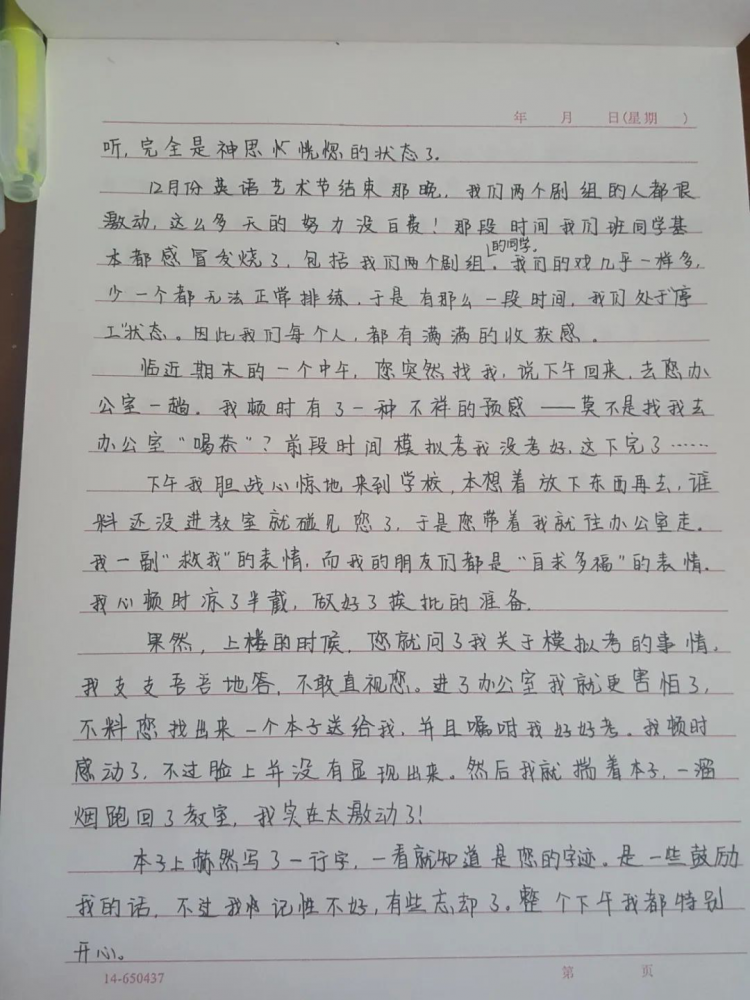 年 月 日(星期 )
听,完全是神思忄恍惚的状态了.
12月份英语艺术节结束那晚,我们两个剧组的人都很
激动,这么多天的努力没白费!那段时间我们班同学基
的同学.
本都感冒发烧了,包括我们两个剧组.我们的戏几乎一样多,
少一个都无法正常排练,于是有那么一段时间,我们处于"停
工"状态。因此我们每个人,都有满满的收获感.
临近期末的一个中午,您突然找我,说下午回来,去您办
公室一趟.我顿时有了一种不祥的预感——莫不是找我去
办公室"喝茶"?前段时间模拟考我没考好,这下完了……
下午我胆战心惊地来到学校,本想着放下东西再去,谁
料还没进教室就碰见您了,于是您带着我就往办公室走.
我一副"救我"的表情,而我的朋友们都是"自求多福"的表情.
我心顿时凉了半截,做好了挨批的准备.
果然,上楼的时候,您就问了我关于模拟考的事情,
我支支吾吾地答,不敢直视您。进了办公室我就更害怕了,
不料您找出来一个本子送给我,并且嘱咐我好好考.我顿时
感动了,不过脸上并没有显现出来。然后我就揣着本子,一溜
烟跑回了教室,我实在太激动了!
本子上赫然写了一行字,一看就知道是您的字迹.是一些鼓励
我的话,不过我记性不好,有些忘却了。整个下午我都特别
开心。
14-650437 第 页